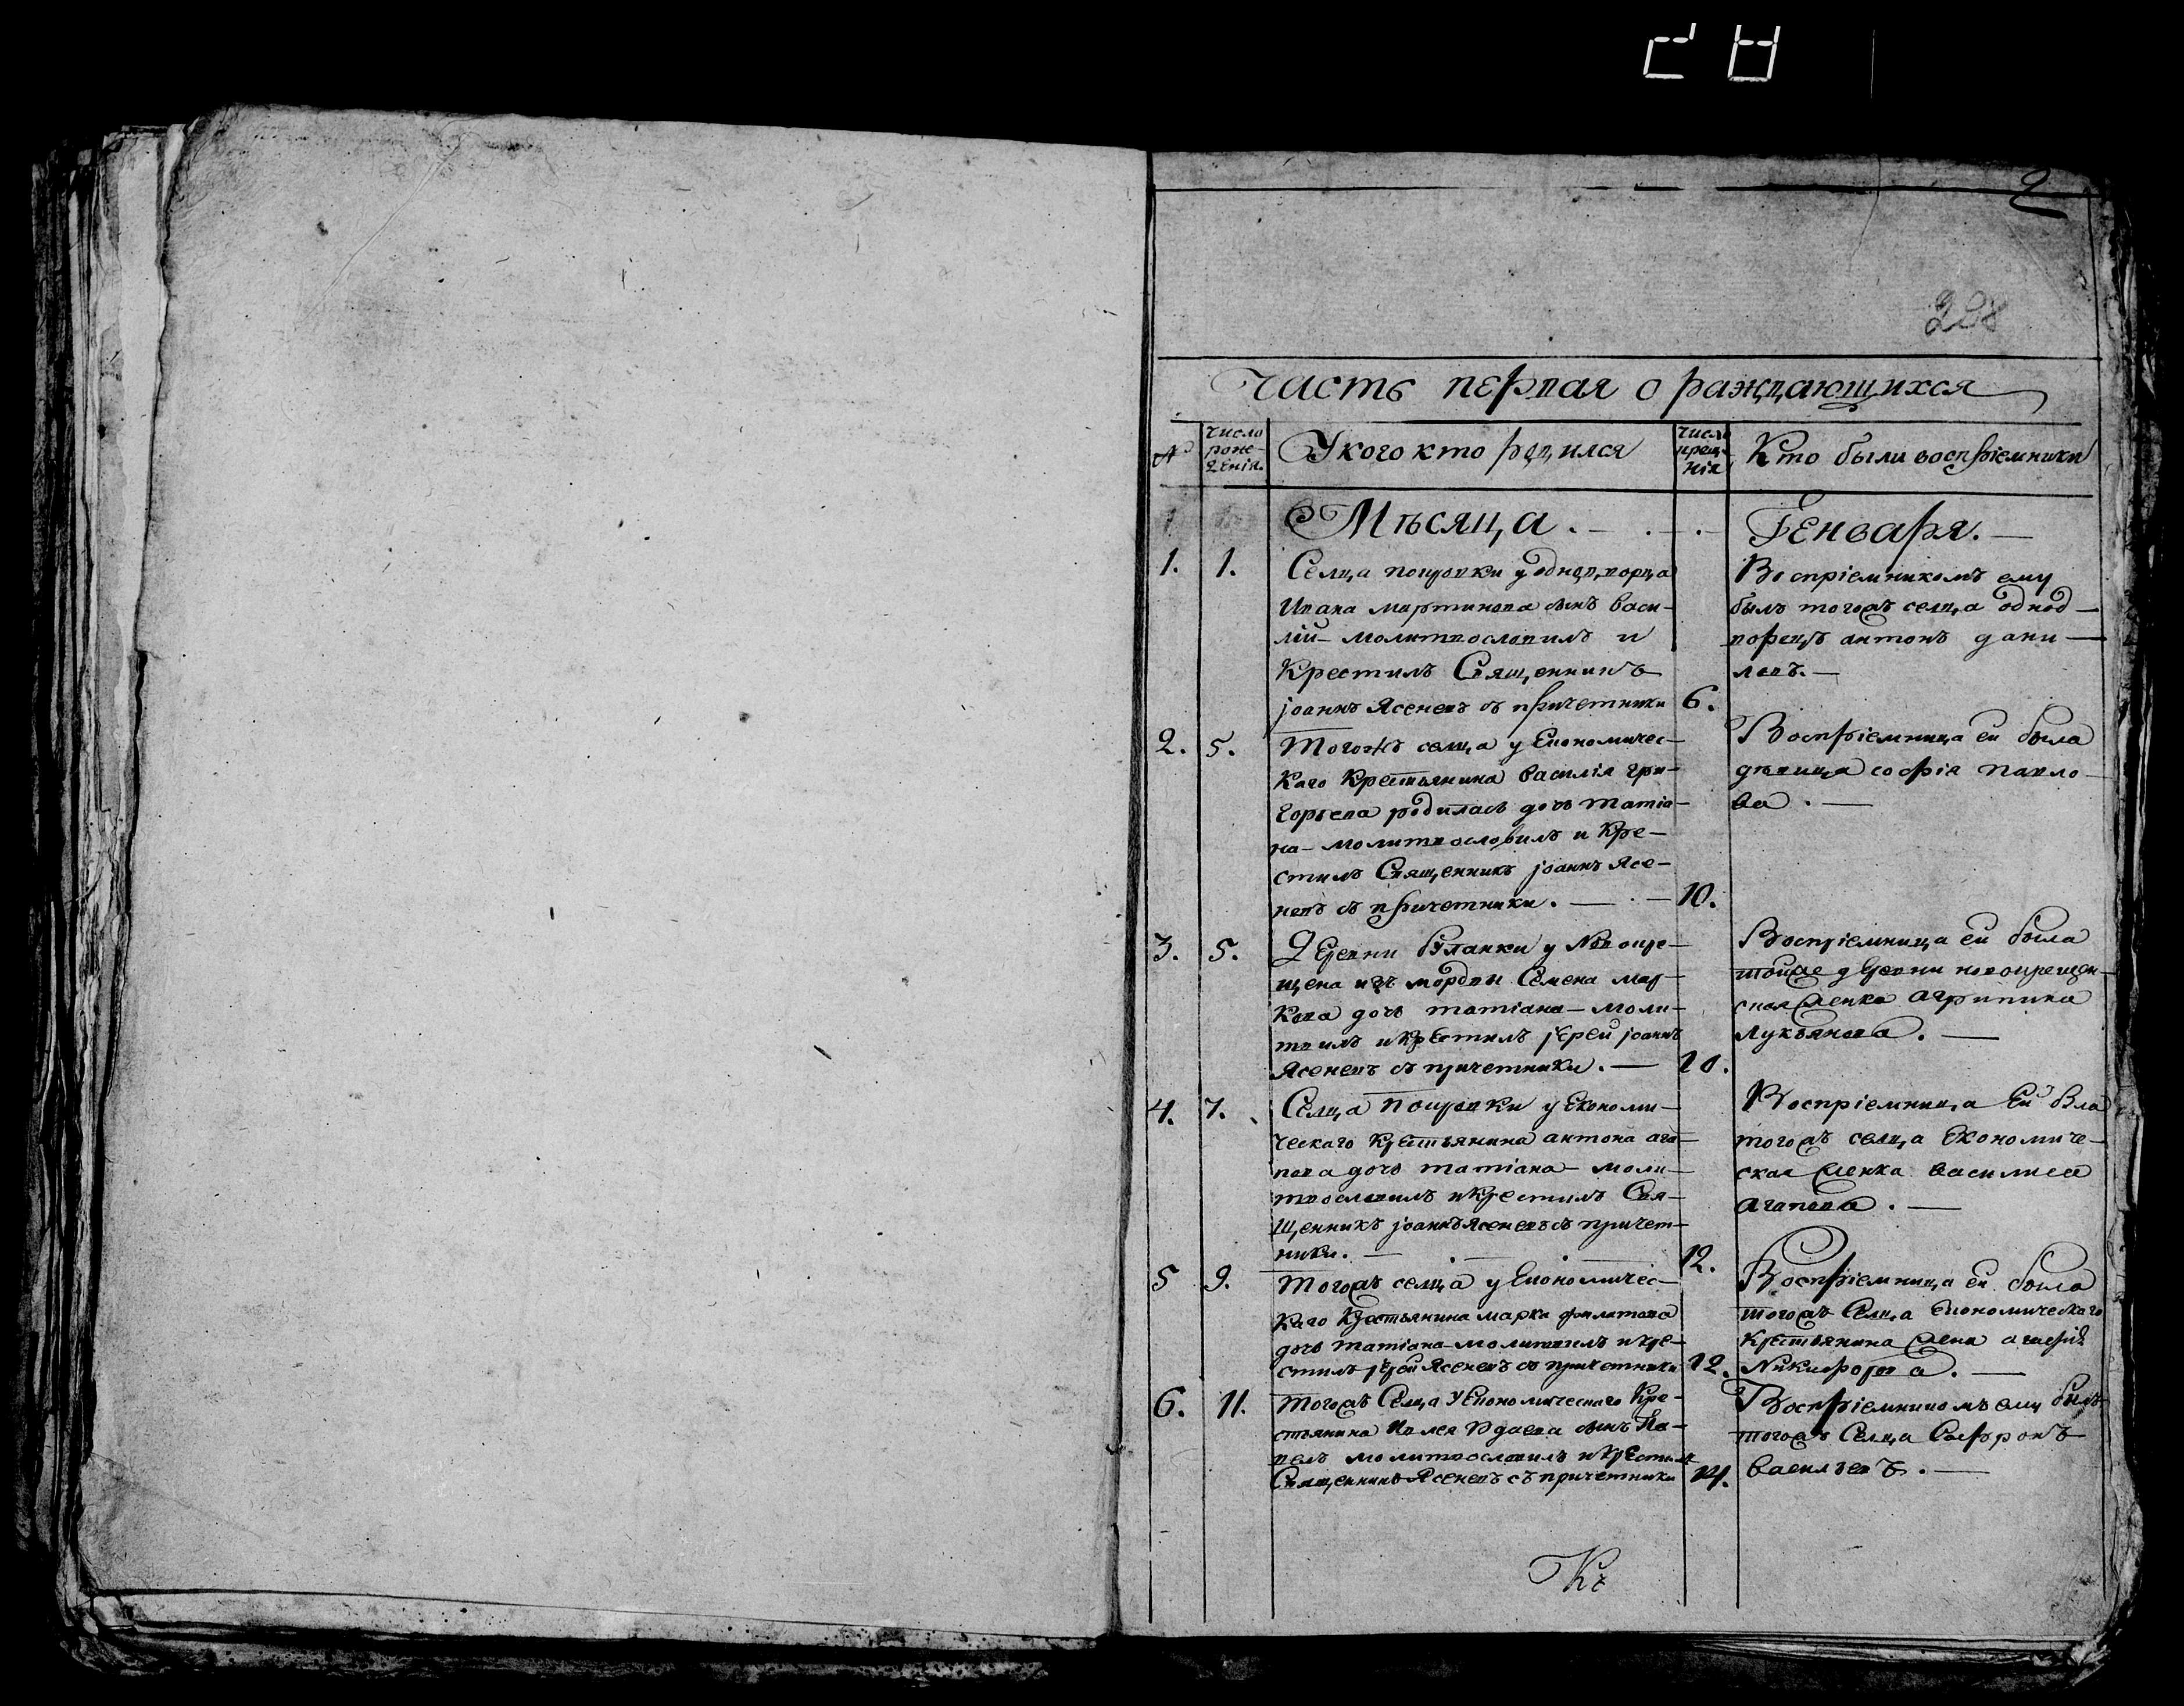 2
298
Часть первая о раждающихся
№
число рожденія.
У кого кто родился
число крещенія
Кто были воспріемники
Мѣсяца . — . — . —
Генваря. —
1. 1. Селца покровки у однодворца
Ивана мартинова сынъ васи-
лій — молитвословилъ и
Крестилъ Священникъ
іоаннъ Ясеневъ съ причетники 6.
Воспріемникомъ ему
былъ тогожъ селца однод-
ворецъ антонъ дани-
ловъ. —
2. 5. Тогожъ селца у Економичес-
Каго Крестьянина василія гри-
горьева родилась дочь татіа-
на — молитвословилъ и Кре-
стилъ Священникъ іоаннъ Ясе-
невъ съ причетники. — . — 10.
Воспріемница ей была
дѣвица софія павло-
ва . —
3. 5. Деревни у Новокре-
щена изъ мордвы Семена мар-
кова дочь татіана — моли-
твилъ и крестилъ іерей іоаннъ
Ясеневъ съ причетники. — 10.
Воспріемница ей была
тойже деревни новокрещен-
ская женка агрипина
Лукьянова . —
4. 7. Селца покровки у Економи-
ческаго Крестьянина антона ага-
пова дочь татіана — моли-
твословилъ и крестилъ Свя-
щенникъ іоаннъ Ясеневъ съ причет-
ники. — . — . — 12.
Воспріемница Ей бла
тогожъ селца Економиче-
ская женка василиса
агапова . —
5 9. тогожъ селца у Економичес-
Каго Крестьянина марка филатова
дочь татіана — молитвилъ и кре-
стилъ іерей Ясеневъ съ причетники 12.
Воспріемница ей была
тогожъ Селца економическаго
Крестьянина жена агафія
Никифорова. —
6. 11. тогожъ Селца У Економическаго Кре-
стьянина сынъ Па-
велъ молитвословилъ и Крестилъ
Священникъ Ясеневъ съ причетники 14.
Воспріемникомъ ему былъ
тогожъ Селца Софронъ
васильевъ. —